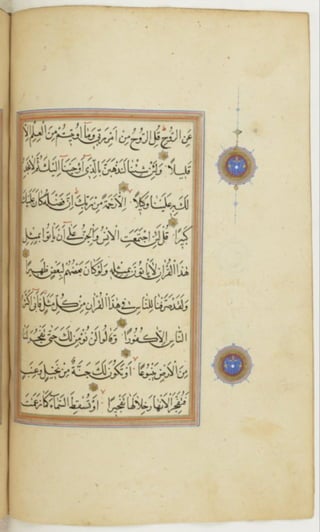 عَنِ الرُّوحِ قُلِ الرُّوحُ مِنْ أَمْرِ رَبِّي وَمَا أُوتِيتُمْ مِنَ الْعِلْمِ إِلَّا
قَلِيلًا وَلَئِنْ شِئْنَا لَنَذْهَبَنَّ بِالَّذِي أَوْحَيْنَا إِلَيْكَ ثُمَّ لَا تَجِدُ
لَكَ بِهِ عَلَيْنَا وَكِيلًا إِلَّا رَحْمَةً مِنْ رَبِّكَ إِنَّ فَضْلَهُ كَانَ عَلَيْكَ
كَبِيرًا قُلْ لَئِنِ اجْتَمَعَتِ الْإِنْسُ وَالْجِنُّ عَلَى أَنْ يَأْتُوا بِمِثْلِ
هَذَا الْقُرْآنِ لَا يَأْتُونَ بِمِثْلِهِ وَلَوْ كَانَ بَعْضُهُمْ لِبَعْضٍ ظَهِيرًا
وَلَقَدْ صَرَّفْنَا لِلنَّاسِ فِي هَذَا الْقُرْآنِ مِنْ كُلِّ مَثَلٍ فَأَبَى أَكْثَرُ
النَّاسِ إِلَّا كُفُورًا وَقَالُوا لَنْ نُؤْمِنَ لَكَ حَتَّى تَفْجُرَ لَنَا
مِنَ الْأَرْضِ يَنْبُوعًا أَوْ تَكُونَ لَكَ جَنَّةٌ مِنْ نَخِيلٍ وَعِنَبٍ
فَتُفَجِّرَ الْأَنْهَارَ خِلَالَهَا تَفْجِيرًا أَوْ تُسْقِطَ السَّمَاءَ كَمَا زَعَمْتَ